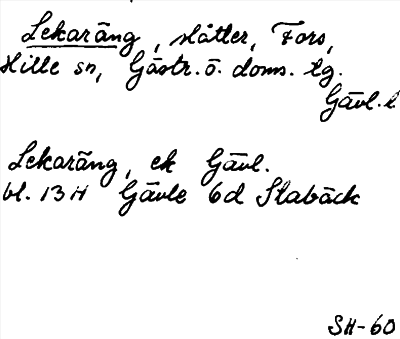 Lekaräng, slåtter, Fors,
Hille sn, Gästr. ö. doms. tg.
Gävl. l
Lekaräng, ek Gävl.
bl. 13H Gävle 6d Stabäck
SH-60